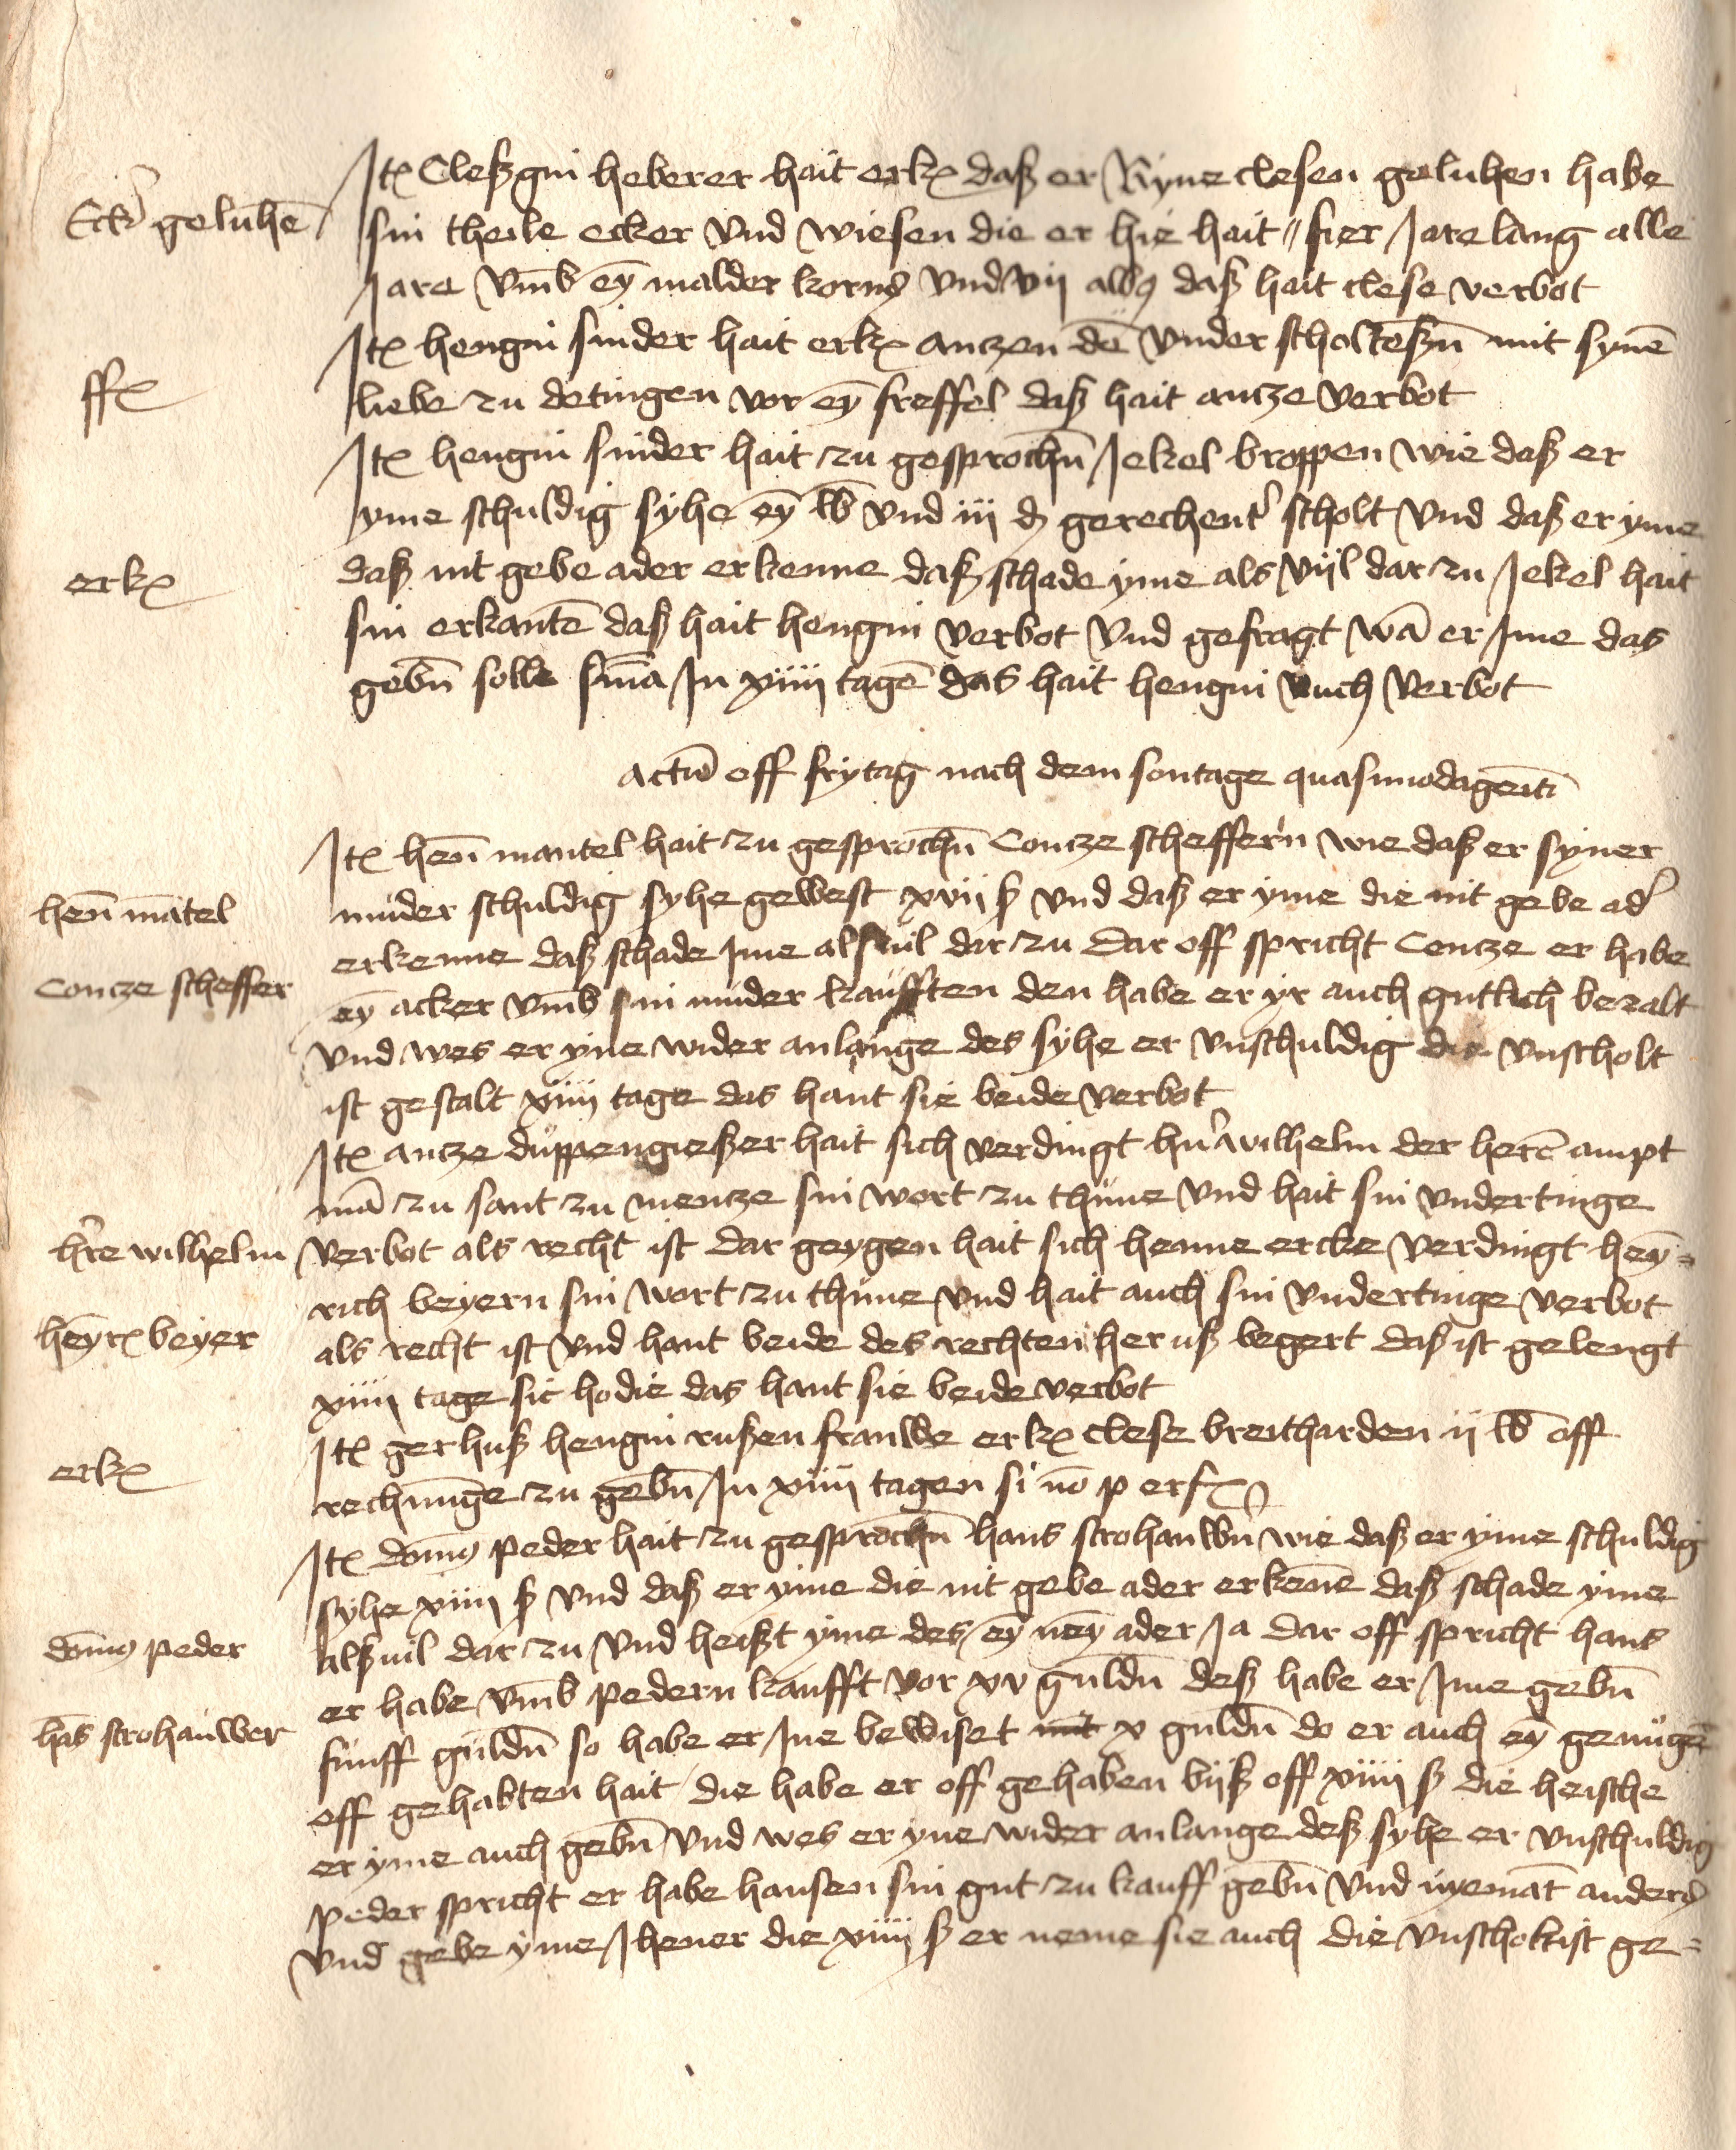 Itꝭ Cleßgin heberer hait erkꝭ daß er Ryne clesen geluhen habe
Eckˀ geluhē
sin theile ecker vnd wiesen die er hie hait // fier Jare lang alle
Jare vm̄b eȳ malder korns vnd vij albꝰ daß hait clese verbot
Itꝭ hengin snider hait erkꝭ anczen dē vnder scholteßn̄ mit synē
ffꝭ
liebe zu detingen vor eȳ freffel daß hait ancze verbot
Itꝭ hengin snider hait zu gesprochn̄ Jekel broppen wie daß er
yme schuldig syhe eȳ lb̄ vnd iij ₰ gerechentˀ scholt vnd daß er yme
erkꝭ
daß nit gebe ader erkenne daß schade yme als vijl dar zu Jekel hait
sin erkantē daß hait hengin verbot vnd gefragt wā er Ime das
gebn̄ solle sn̄ia In xiiij tagē das hait hengin auch verbot
actū off frytag nach dem sontage quasimodogēiti
Itꝭ hen̄ mantel hait zu gesprochn̄ Concze scheffern wie daß er syner
hen̄ mātel
muder schuldig syhe gewest xvij ß vnd daß er yme die nit gebe adˀ
erkenne daß schade Ime als uil dar zu dar off spricht Concze er habe
Concze scheffer
eȳ acker vm̄b sin muder kaufften den habe er yr auch gutlich bezalt
vnd wes er yne wider anlange des syhe er vnschuldig die vnscholt
ist gestalt xiiij tage das hant sie beide verbot
Itꝭ ancze duppengießer hait sich verdingt hn̄ˀ wilhelm der herē ampt
mā zu sant zu mencze sin wort zu thune vnd hait sin vndertinge
hr̄e wilhelm
verbot als recht ist dar geygen hait sich henne ercke verdingt heȳ=
rich beyern sin wort zu thune vnd hait auch sin vndertinge verbot
heyrꝭ beyer
als recht ist vnd hant beide des rechten her uß begert daß ist gelengt
xiiij tage sic hodie das hant sie beide verbot
Itꝭ gerhuß hengin rußen frauwe erkꝭ clese breitharden ij lb̄ off
erkꝭ
rechnūge zu gebn̄ In xiiij tagen si nō p erfꝭ
Itꝭ dōmꝰ peder hait zu gesprochn̄ hans strohauwn̄ wie daß er yme schuldig
syhe xiiij ß vnd daß er yme die nit gebe ader erkēne daß schade yme
dōmꝰ peder
alß uil dar zu vnd heißt yme des eȳ neȳ ader Ja dar off spricht hans
er habe vm̄b pedern kaufft vor xv guldn̄ deß habe er Ime gebn̄
hās strohauwer
funff guldn̄ so habe er Ine bewiset mit x guldn̄ do er auch eȳ genugē
off gehabten hait die habe er off gehaben biß off xiiij ß die heische
er yme auch gebn̄ vnd wes er yne wider anlange deß syhe er vnschuldig
peder spricht er habe hansen sin gut zu kauff gebn̄ vnd nyemāt anders
vnd gebe yme Jhener die xiiij ß er neme sie auch die vnscholt ist ge=